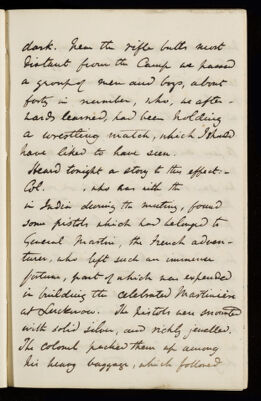 dark. Near the rifle butts most
distant from the Camp we passed
a group of men and boys, about
forty in number, who, we after-
wards learned, had been holding
a wrestling match, which I should
have liked to have seen.
Heard tonight a story to this effect:-
Col. , who was with the
in India during the mutiny, found
some pistols which had belonged to
General Martin, the French adven-
turer, who left such an immense
fortune, part of which was expended
in building the celebrated Martinière
at Lucknow. The pistols were mounted
with solid silver, and richly jewelled.
The Colonel packed them up among
his heavy baggage, which followed